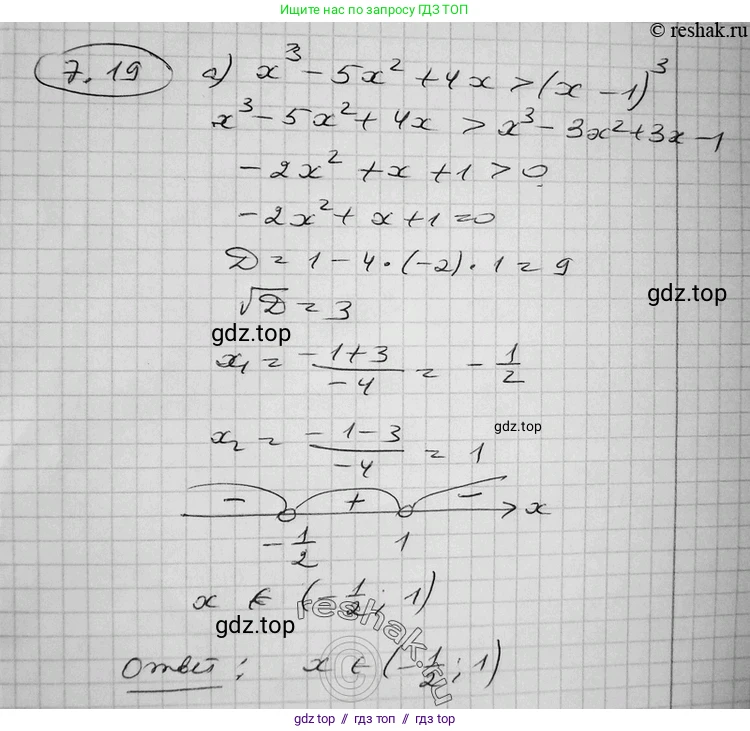 Ищите нас по запросу ГДЗ ТОП
© reshak.ru
7.19 а) x³ − 5x² + 4x > (x − 1)³
x³ − 5x² + 4x > x³ − 3x² + 3x − 1
−2x² + x + 1 > 0
−2x² + x + 1 = 0
D = 1 − 4 · (−2) · 1 = 9
gdz.top
√D = 3
gdz.top
x₁ = (−1+3)/(−4) = −1/2
gdz.top
x₂ = (−1−3)/(−4) = 1
− + − x
−1/2 1
x ∈ (−1/2; 1)
reshak.ru
gdz.top
Ответ: x ∈ (−1/2; 1)
gdz top // гдз топ // gdz.top